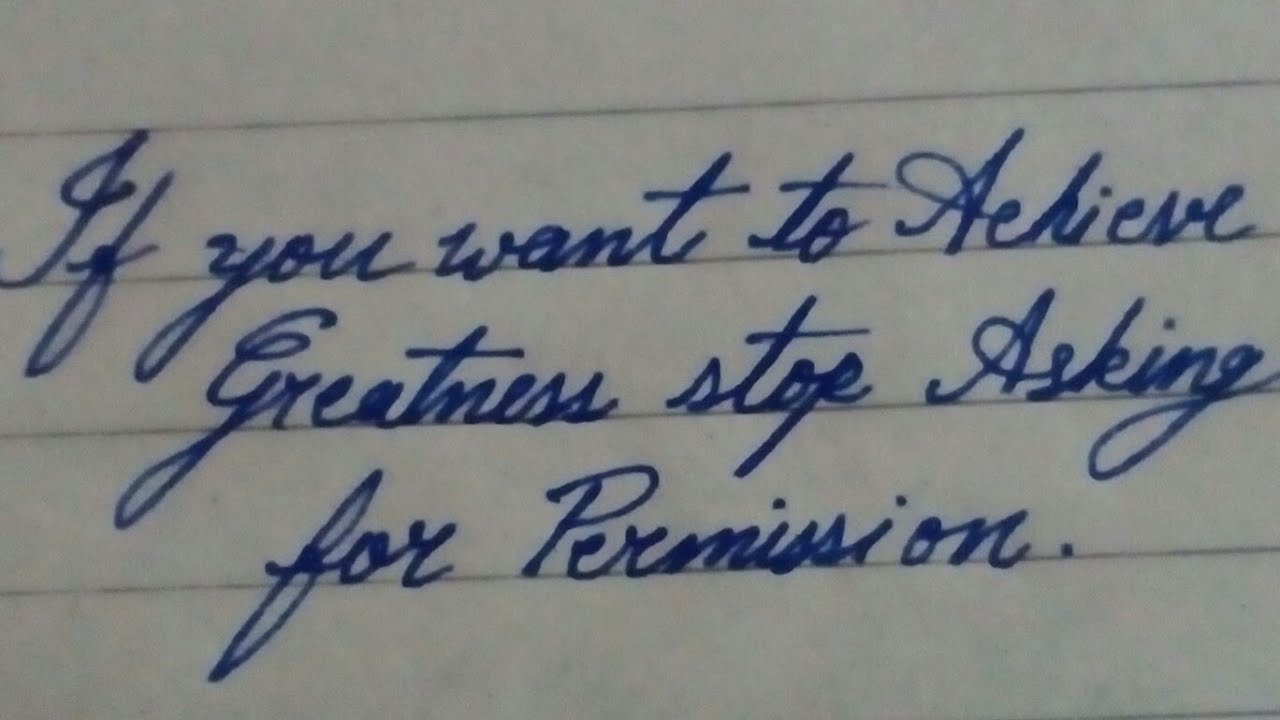 If you want to Achieve
Greatness stop Asking
for Permission.